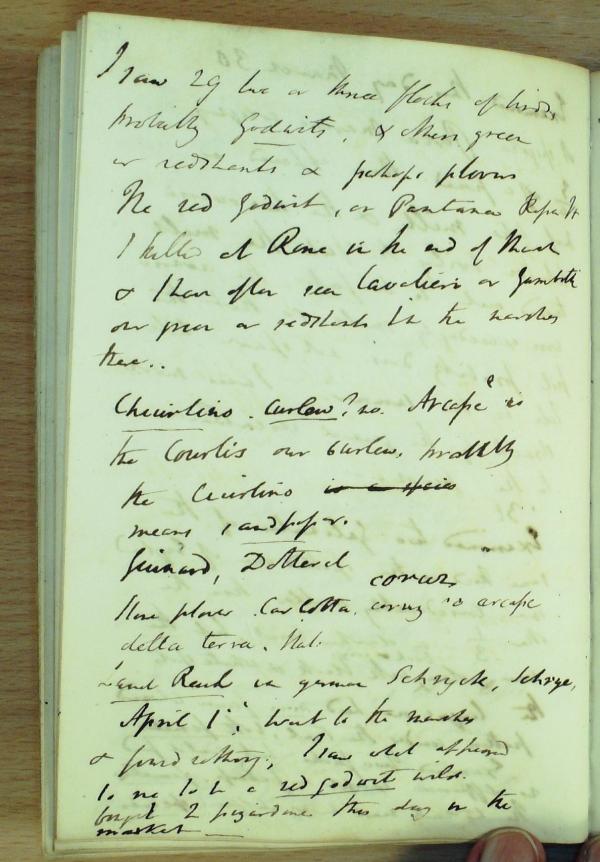 I saw 29 two or three flocks of birds
probably Godwits, & others green
or redshanks & perhaps plovers
The red godwit, or Pantana
I killed at Rome in the end of March
& I have often seen Cavalieri or Gambetti
our green or redshanks in the marshes
there..
Chiurlino. Curlew? no. Arcase is
the Courlis our Curlew. probably
the Ciurlino is a species
means
Guinard, Dotterel
Stone plover. Carlotta. coruz is arcase
coruz
della terra. Ital:
Land Rail in german Schryck, Schrye,
April 1st, went to the marshes
& found nothing, I saw what appeared
to me to be a red godwit wild.
bought 2 this day in the
market